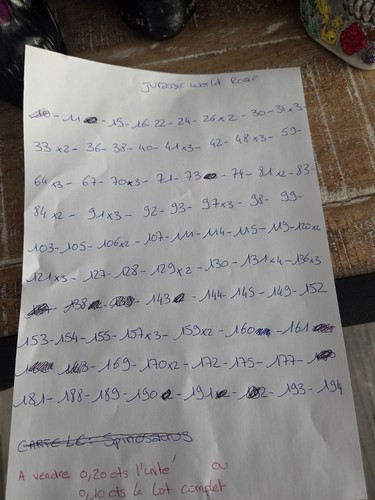 Jurassic World Roar
11 - 15 - 16 - 22 - 24 - 26 x2 - 30 - 31 x3 -
33 x2 - 36 - 38 - 40 - 41 x3 - 42 - 48 x3 - 59 -
64 x3 - 67 - 70 x3 - 71 - 73 - 74 - 81 x2 - 83 -
84 x2 - 91 x3 - 92 - 93 - 97 x3 - 98 - 99 -
103 - 105 - 106 x2 - 107 - 111 - 114 - 115 - 119 - 120 x2
121 x3 - 127 - 128 - 129 x2 - 130 - 131 x4 - 136 x3
138 - 143 - 144 - 145 - 149 - 152
153 - 154 - 155 - 157 x3 - 159 x2 - 160 - 161
169 - 170 x2 - 172 - 175 - 177 -
181 - 188 - 189 - 190 - 191 - 193 - 194
CARTE LE : Spinosaurus
A vendre 0,20 cts l'unité ou
0,10 cts le lot complet